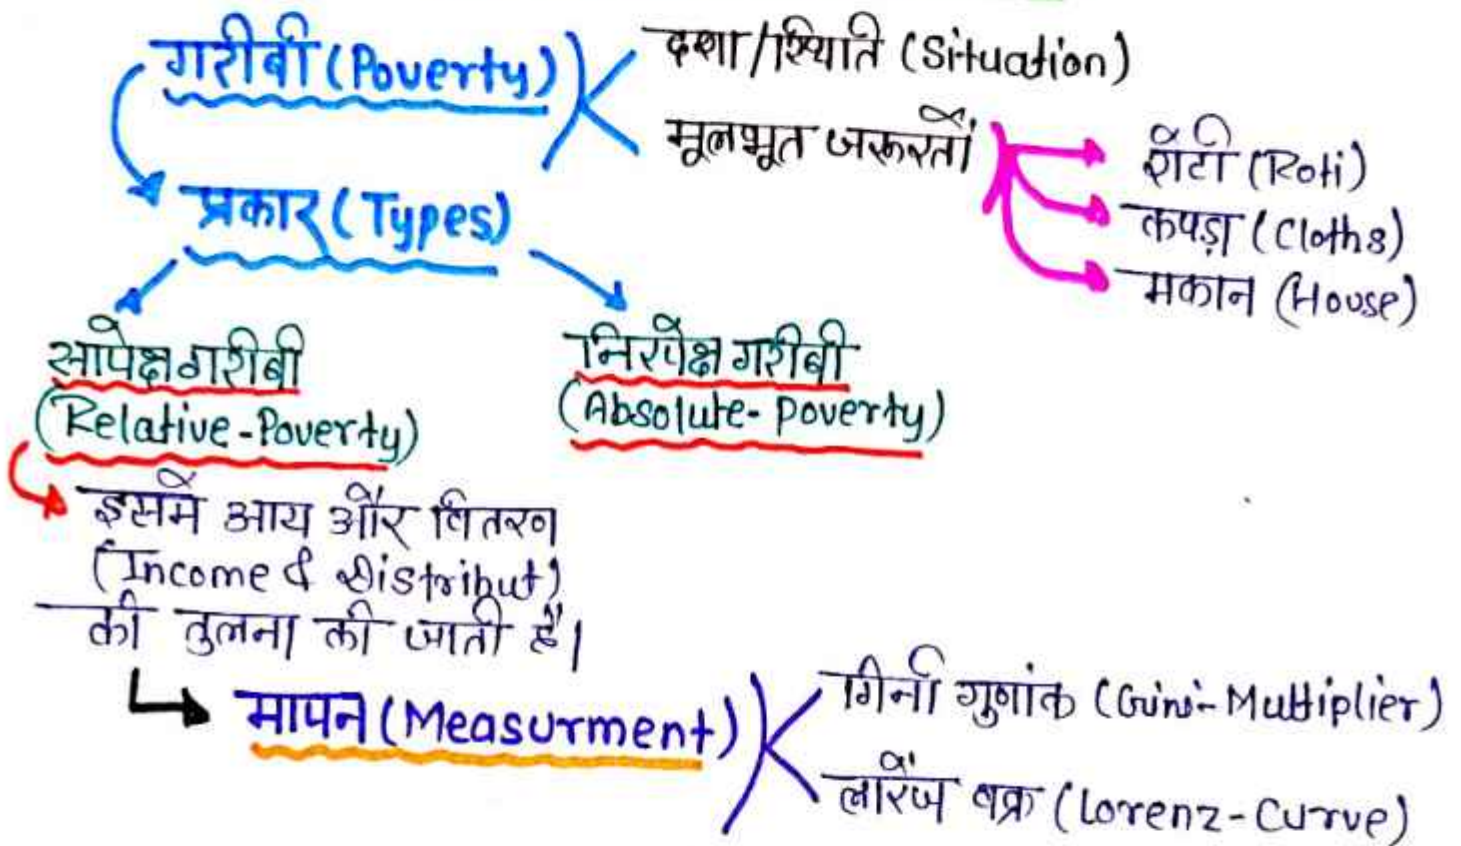 गरीबी (Poverty)
दशा/स्थिति (Situation)
मूलभूत जरूरतों
रोटी (Roti)
कपड़ा (Cloths)
मकान (House)
प्रकार (Types)
सापेक्ष गरीबी
(Relative-Poverty)
निरपेक्ष गरीबी
(Absolute-poverty)
इसमें आय और वितरण
(Income & Distribut)
की तुलना की जाती है।
मापन (Measurment)
गिनी गुणांक (Gini-Multiplier)
लॉरेंज वक्र (Lorenz-Curve)